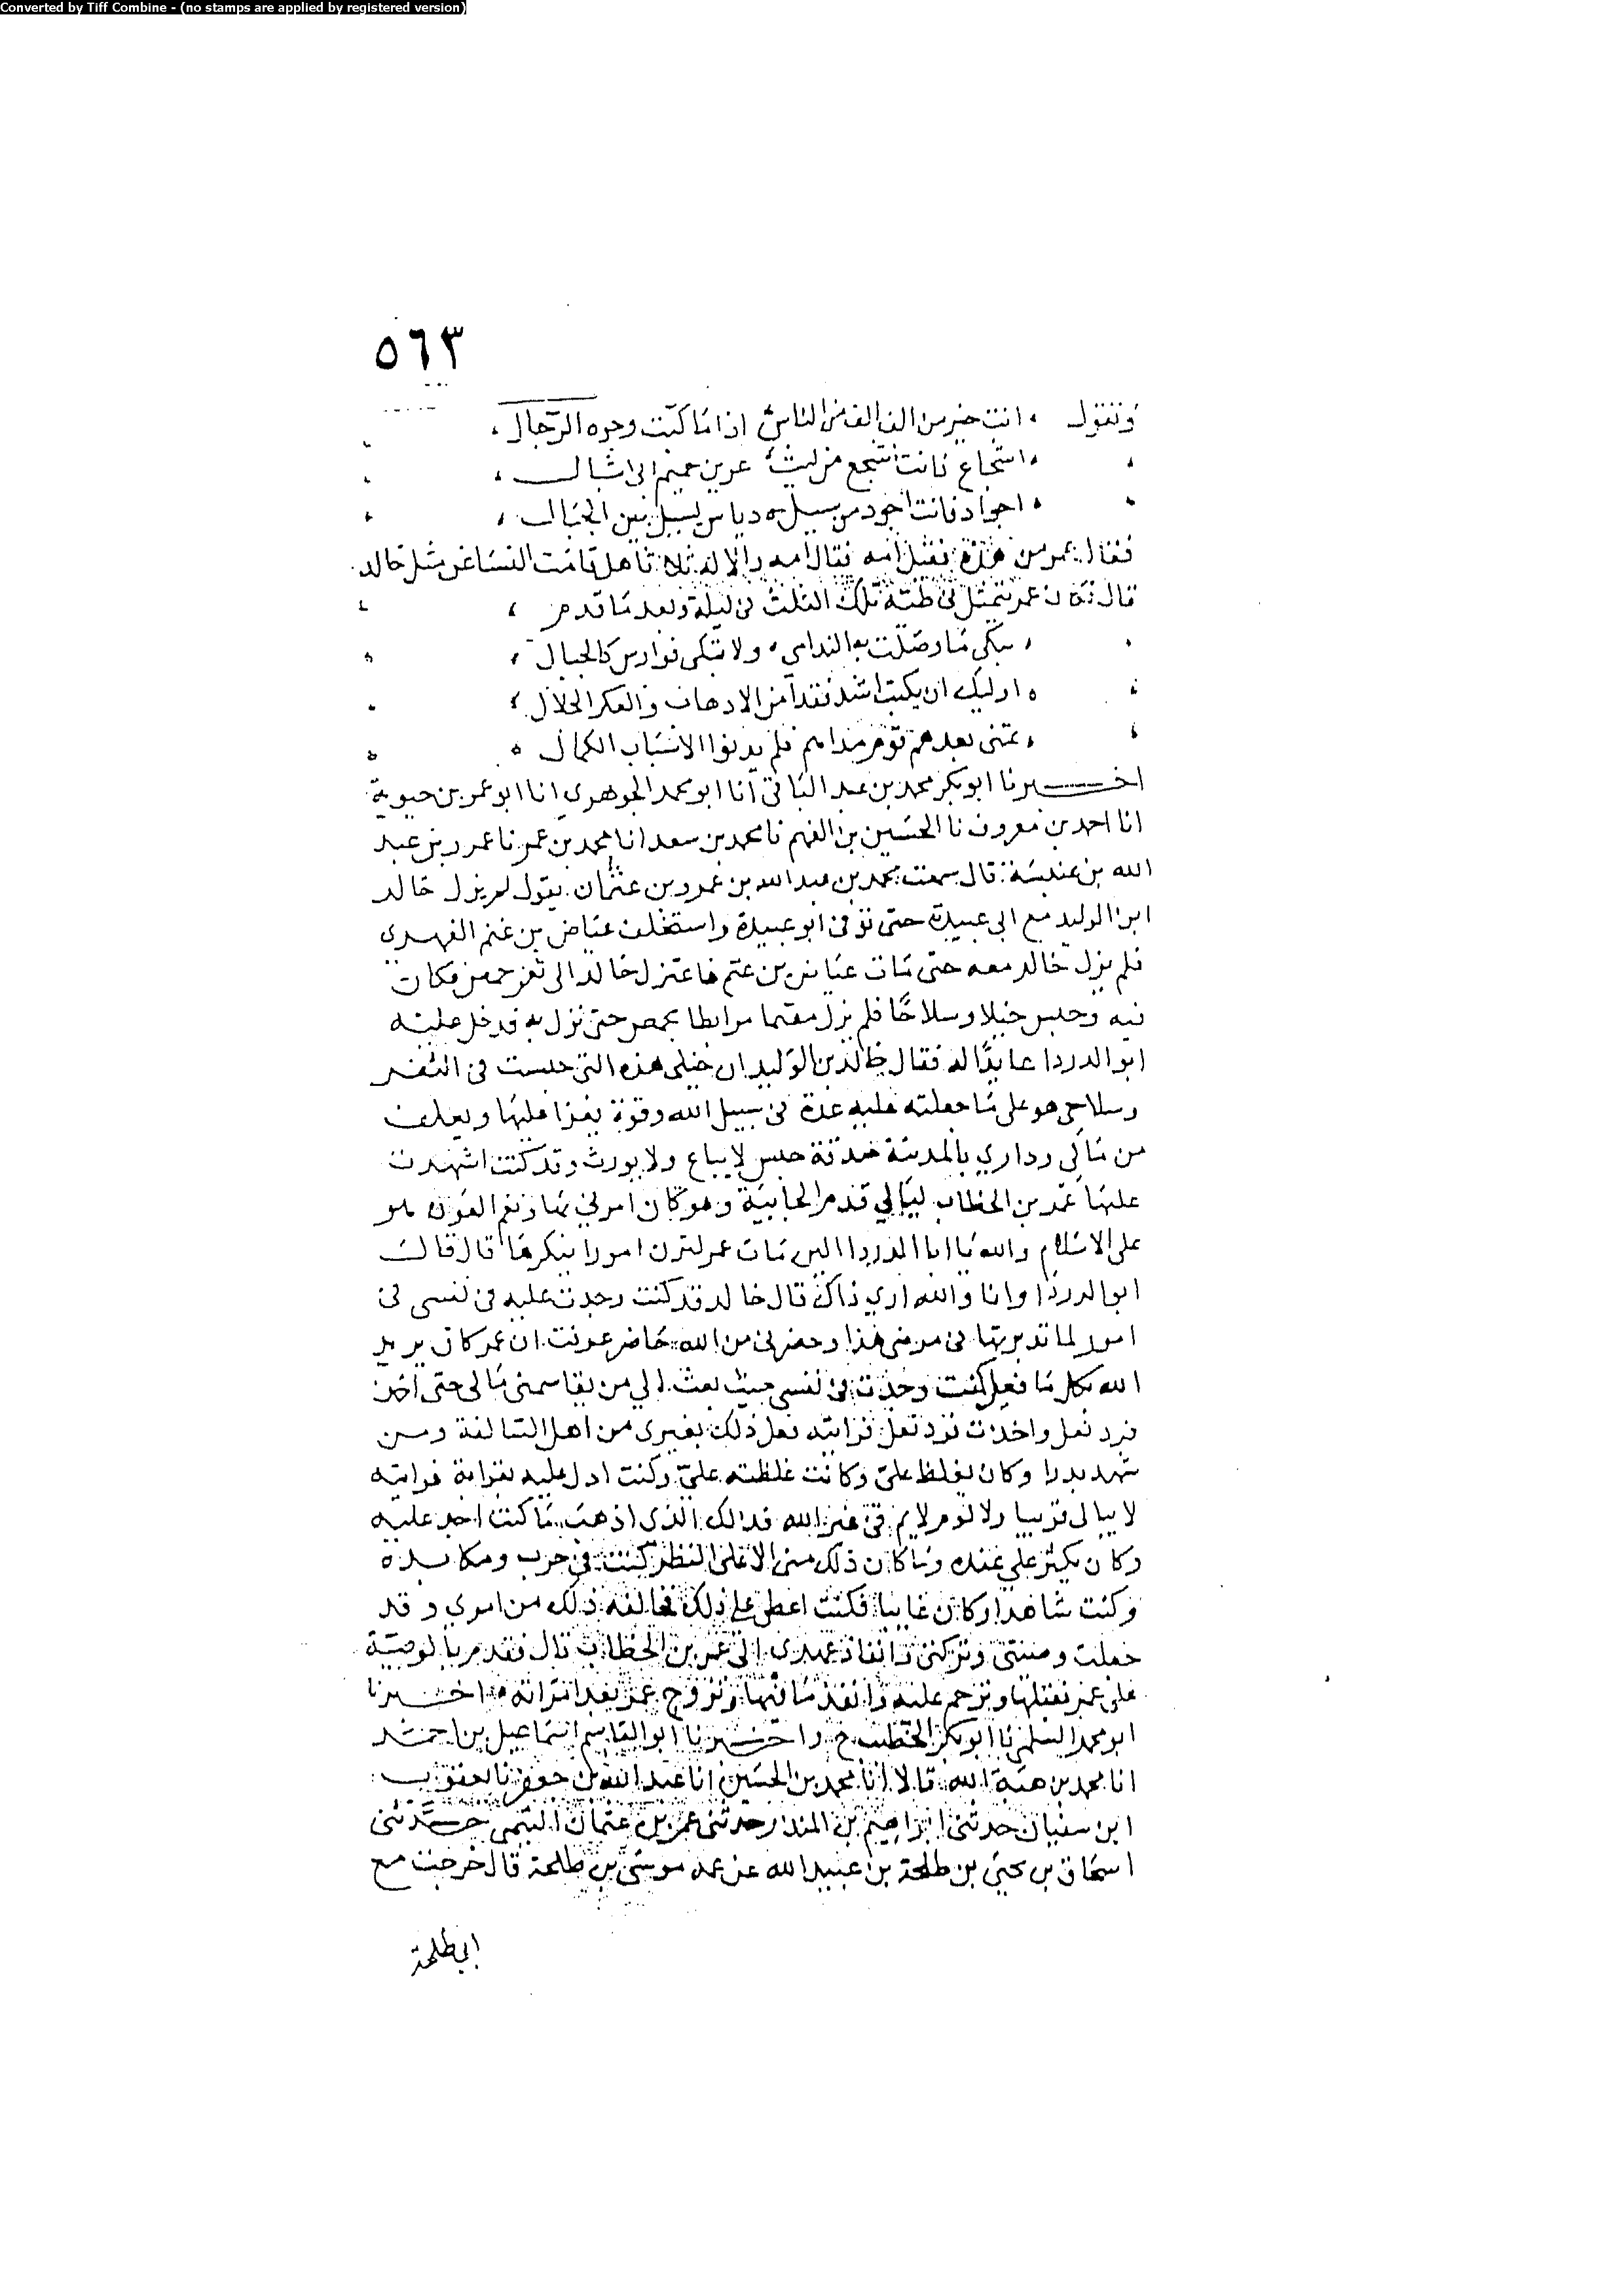 Converted by Tiff Combine - (no stamps are applied by registered version)
٥٦٣
وتقول ، انت خير من الف الف من الناس اذا ما كبت وجوه الرجال ،
، اشجاع فانت اشجع من ليث عرين جهم الى اشبال ،
، اجواد فانت اجود من سيل دياس يسيل بين الجبال ،
فقال عمر من هذه فقيل امه فقال امه والاله ثلاثا هل قامت النسا عن مثل خالد
قال فكان عمر يتمثل في طيه تلك الثلاث في ليلة وبعد ما قدم ،
، تبكي ما وصلت به الندامى ولا تبكي فوارس كالجبال ،
، اوليك ان بكيت اشد فقدا من الاذهاب والعكر الجلال ،
، تمنى بعدهم قوم مداهم فلم يدنوا لاسباب الكمال ،
اخبرنا ابو بكر محمد بن عبد الباقي انا ابو محمد الجوهري انا ابو عمر بن حيوية
انا احمد بن معروف نا الحسين بن الفهم نا محمد بن سعد انا محمد بن عمر نا عمرو بن عبد
الله بن عنبسة قال سمعت محمد بن عبد الله بن عمرو بن عثمان يقول لم يزل خالد
ابن الوليد مع ابي عبيدة حتى توفي ابو عبيدة واستخلف عياض بن غنم الفهري
فلم يزل خالد معه حتى مات عياض بن غنم فاعتزل خالد الى ثغر حمص فكان
فيه وحبس خيلا وسلاحا فلم يزل مقيما مرابطا بحمص حتى نزل به فدخل عليه
ابو الدردا عايدا له فقال خالد بن الوليد ان خيلي هذه التي حبست في الثغر
وسلاحي هو على ما جعلته عليه عدة في سبيل الله وقوة يغزا عليها ويعلف
من مالي وداري بالمدينة صدقة حبس لا يباع ولا يورث وقد كنت اشهدت
عليها عمر بن الخطاب ليالي قدم الجابية وهو كان امرني بها ونعم العون هو
على الاسلام والله يا ابا الدردا الين مات عمر لترن امورا تنكرها قال قالت
ابو الدردا وانا والله ارى ذاك قال خالد قد كنت وجدت عليه في نفسي في
امور لما تدبرتها في مرضي هذا وحضرني من الله حاضر عرفت ان عمر كان يريد
الله بكل ما فعل كنت وجدت في نفسي حيث بعث الي من يقاسمني مالي حتى اخذ
فرد نعل واخذت فرد نعل فرايته فعل ذلك بغيري من اهل السالفة ومن
شهد بدرا وكان يغلظ علي وكانت غلظته علي وكنت ادل عليه بقرابة فرايته
لا يبالي قريبا ولا لوم لايم في غير الله فذالك الذي اذهب ما كنت اجد عليه
وكان يكثر علي عنده وما كان ذلك مني الا على النظر كنت في حرب ومكابدة
وكنت شاهدا وكان غايبا فكنت اعطي على ذلك فخالفه ذلك من امري وقد
جعلت وصيتي وتركتي وانفاذ عهدي الى عمر بن الخطاب قال فقدم بالوصية
على عمر فقبلها وترحم عليه وانفذ ما فيها وتزوج عمر بعد امراته اخبرنا
ابو محمد السلمي نا ابو بكر الخطيب ح واخبرنا ابو القاسم اسماعيل بن احمد
انا محمد بن هبة الله قالا انا محمد بن الحسين انا عبد الله بن جعفر نا يعقوب
ابن سفيان حدثني ابراهيم بن المنذر حدثني عمر بن عثمان التيمي حدثني
اسحاق بن يحيى بن طلحة بن عبيد الله عن عمه موسى بن طلحة قال خرجت مع
ابي طلحة